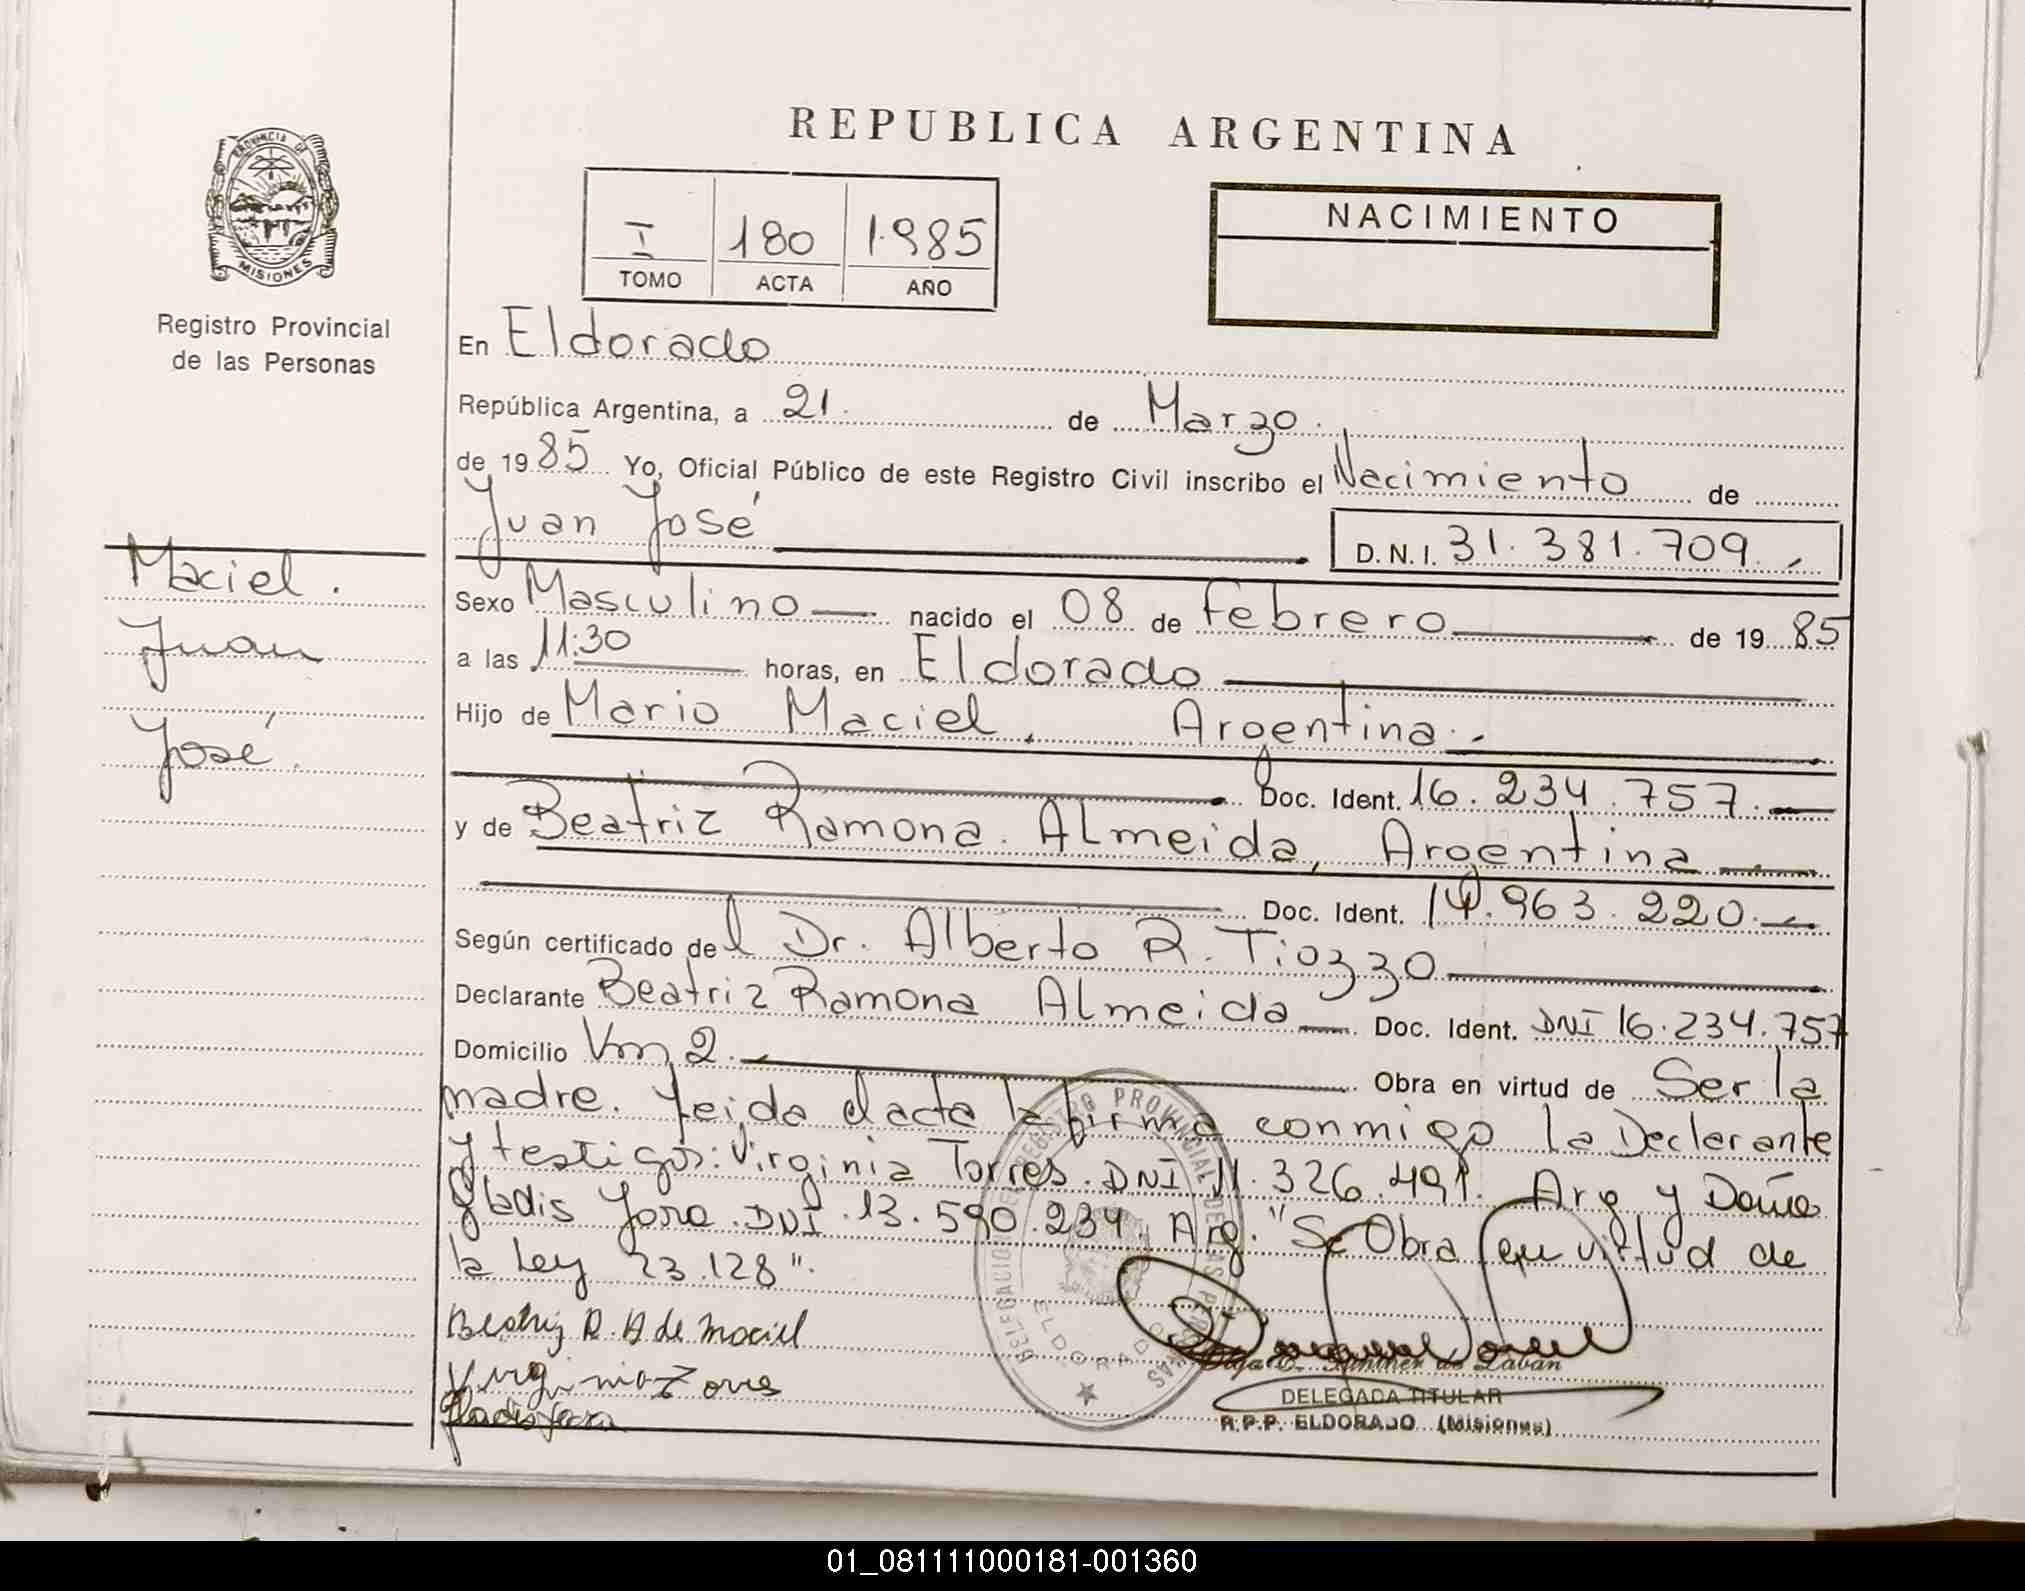 REPUBLICA ARGENTINA
PROVINCIA DE
MISIONES
Registro Provincial
de las Personas
I 180 1.985
TOMO ACTA AÑO
NACIMIENTO
En Eldorado
República Argentina, a 21. de Marzo.
de 19 85 Yo, Oficial Público de este Registro Civil inscribo el Nacimiento de
Juan José
D.N.I. 31.381.709.
Maciel.
Juan
José.
Sexo Masculino nacido el 08 de Febrero de 19 85
a las 11:30 horas, en Eldorado
Hijo de Mario Maciel, Argentina.
Doc. Ident. 16.234.757.
y de Beatriz Ramona Almeida, Argentina
Doc. Ident. 14.963.220.
Según certificado del Dr. Alberto R. Tiozzo
Declarante Beatriz Ramona Almeida Doc. Ident. DNI 16.234.757
Domicilio Km 2. Obra en virtud de Ser la
madre. Leida el acta la firma conmigo la Declarante
y testigos: Virginia Torres. DNI 11.326.491. Arg y Doña
Gladis Jara. DNI. 13.590.234. Arg. "Se Obra en virtud de
la Ley 23.128".
Beatriz R. A de Maciel
Virginia Torres
Gladis Jara
DELEGACION DE REGISTRO PROVINCIAL DE LAS PERSONAS
ELDORADO
de Laban
DELEGADA TITULAR
R.P.P. ELDORADO (Misiones)
01_081111000181-001360